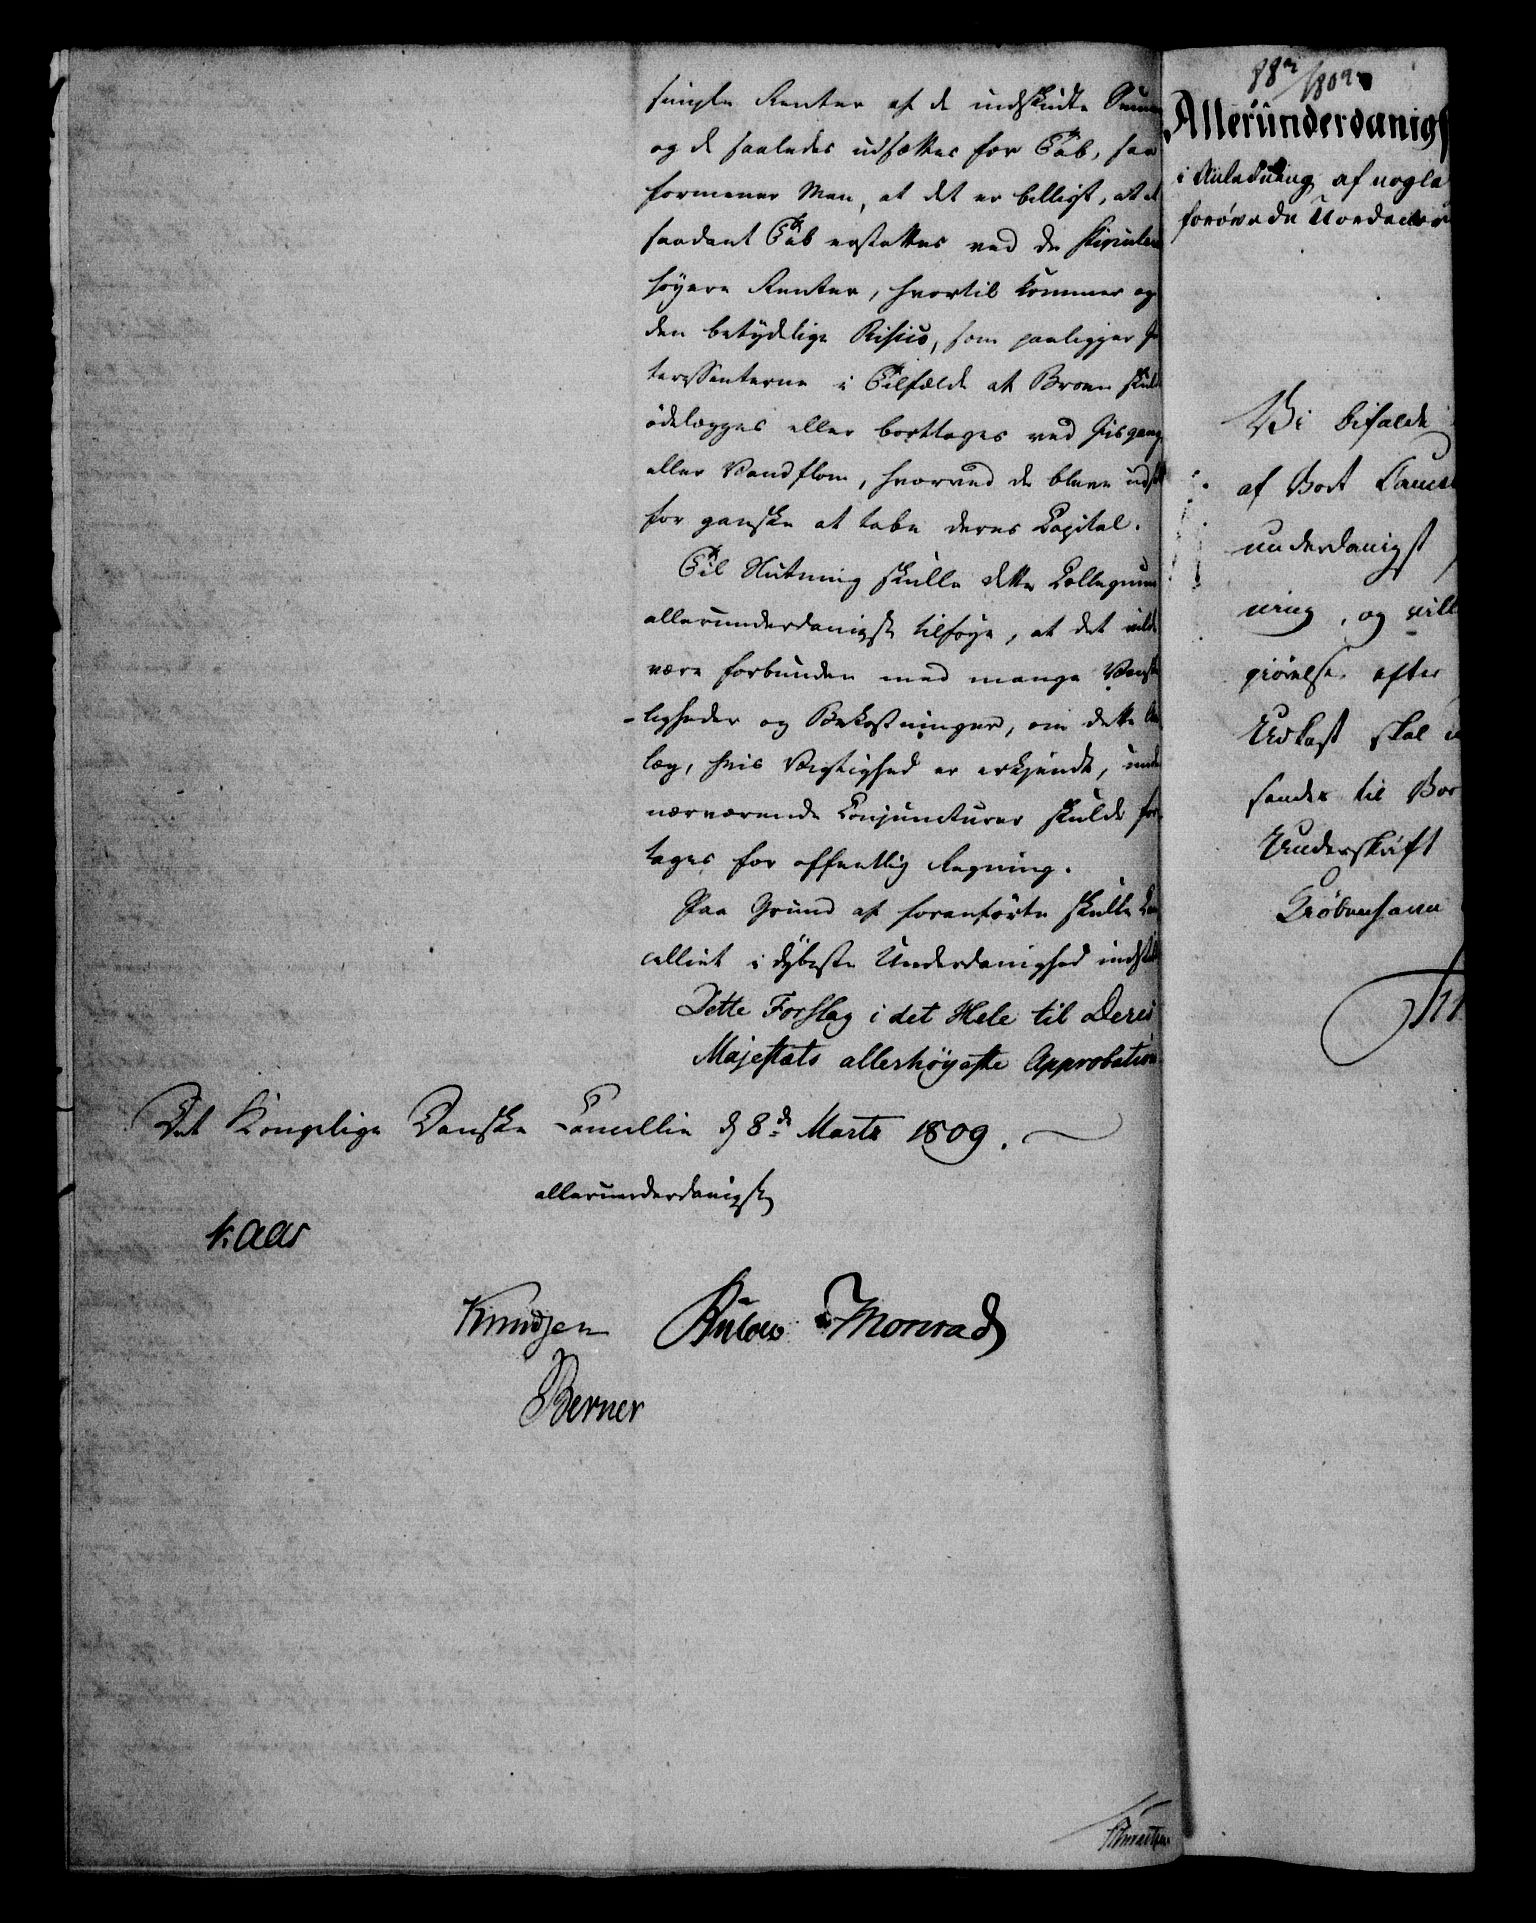 simple Renter af de indskudte Summ
og de saaledes udsættes for Tab, saa
formener Man, at det er billigt, at et
saadant Tab erstattes ved de stipulere
høyere Renter, hvortil kommer og
den betydelige Risico, som paaligger In
teressenterne i Tilfælde at Broen skuld
ødelægges eller borttages ved Iisgang
eller Vandflom, hvorved de bleve udsat
for ganske at tabe deres Capital.
Til Slutning skulle dette Collegium
allerunderdanigst tilføye, at det vilde
være forbunden med mange Vanske
ligheder og Bekostninger, om dette An
læg, hvis Vigtighed er erkjendt, under
nærværende Conjuncturer skulde fore
tages for offentlig Regning.
Paa Grund af foranførte skulle Can
celliet i dybeste Underdanighed indstille
Dette Forslag i det Hele til Deres
Majestæts allerhøyeste Approbation
Det Kongelige Danske Cancellie d 8de Marts 1809.
allerunderdanigst
Kaas
Knudsen Bülow Monrad
Berner
1809
Allerunderdanigs
i Anledning af nogle
forøvede Uordener
Vi bifalde
af Vort Cancel
underdanigst
ning, og vill
giørelse efter
Udkast skal
sendes til Vor
Underskrift
Kiøbenhavn